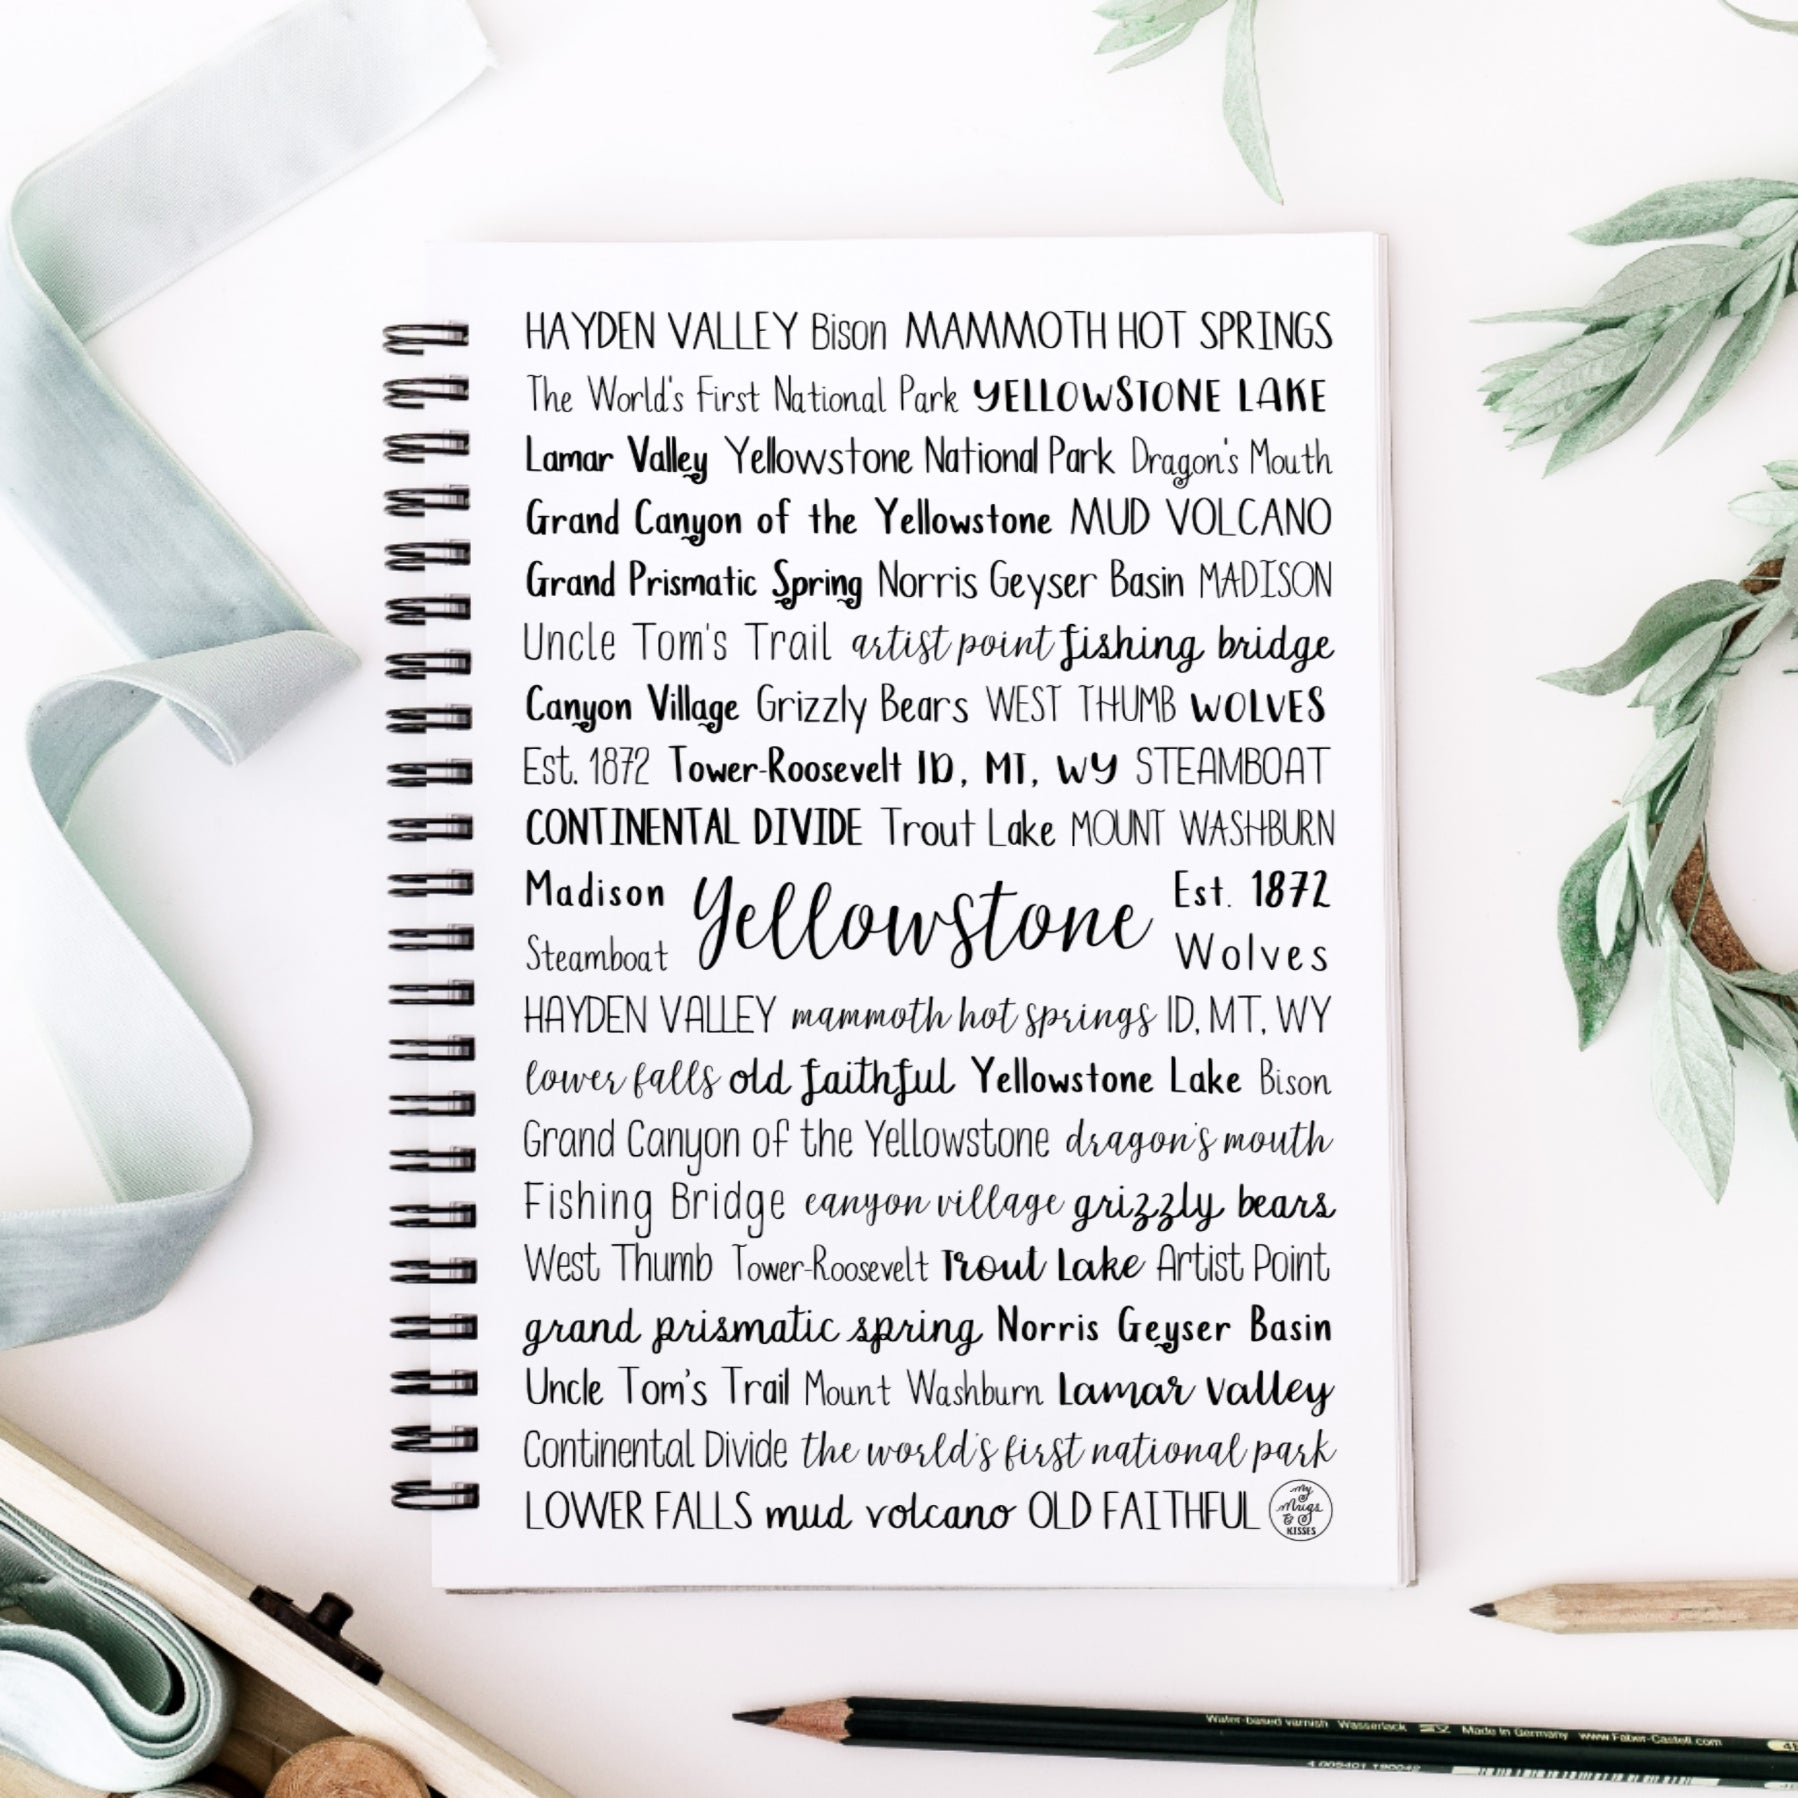 HAYDEN VALLEY Bison MAMMOTH HOT SPRINGS
The World's First National Park YELLOWSTONE LAKE
Lamar Valley Yellowstone National Park Dragon's Mouth
Grand Canyon of the Yellowstone MUD VOLCANO
Grand Prismatic Spring Norris Geyser Basin MADISON
Uncle Tom's Trail artist point fishing bridge
Canyon Village Grizzly Bears WEST THUMB WOLVES
Est. 1872 Tower-Roosevelt ID, MT, WY STEAMBOAT
CONTINENTAL DIVIDE Trout Lake MOUNT WASHBURN
Madison Yellowstone Est. 1872
Steamboat Wolves
HAYDEN VALLEY mammoth hot springs ID, MT, WY
lower falls old faithful Yellowstone Lake Bison
Grand Canyon of the Yellowstone dragon's mouth
Fishing Bridge canyon village grizzly bears
West Thumb Tower-Roosevelt Trout Lake Artist Point
grand prismatic spring Norris Geyser Basin
Uncle Tom's Trail Mount Washburn Lamar Valley
Continental Divide the world's first national park
LOWER FALLS mud volcano OLD FAITHFUL
My
Mugs
&
KISSES
Water-based varnish Wasserlack Made in Germany www.Faber-Castell.com
4 005401 190042